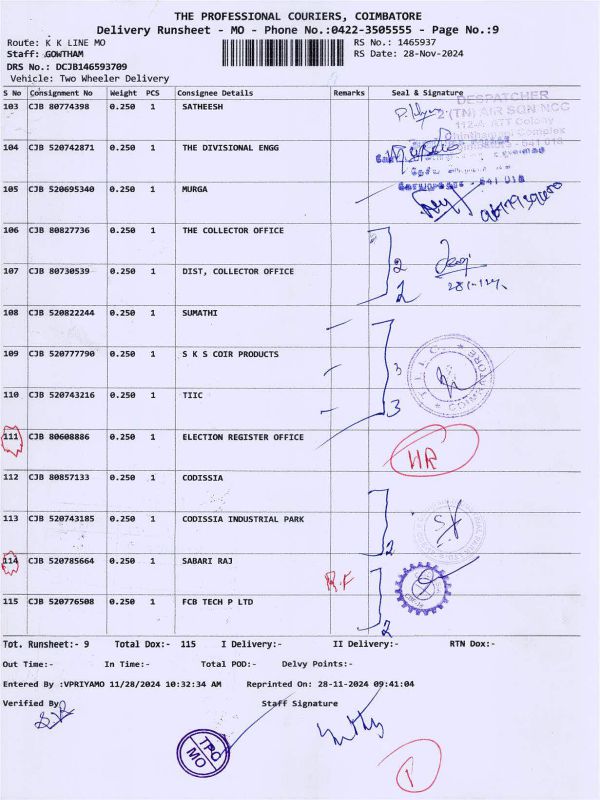 THE PROFESSIONAL COURIERS, COIMBATORE
Delivery Runsheet - MO - Phone No.:0422-3505555 - Page No.:9
Route: K K LINE MO RS No.: 1465937
Staff: GOWTHAM RS Date: 28-Nov-2024
DRS No.: DCJB146593709
Vehicle: Two Wheeler Delivery
S No Consignment No Weight PCS Consignee Details Remarks Seal & Signature
103 CJB 80774398 0.250 1 SATHEESH
DESPATCHER
2 (TN) AIR SQN NCC
112-A, ATT Colony
Complex
641 018
104 CJB 520742871 0.250 1 THE DIVISIONAL ENGG
105 CJB 520695340 0.250 1 MURGA
641 018
106 CJB 80827736 0.250 1 THE COLLECTOR OFFICE
2
107 CJB 80730539 1 0.250 DIST, COLLECTOR OFFICE
2
108 CJB 520822244 0.250 1 SUMATHI
109 CJB 520777790 0.250 1 S K S COIR PRODUCTS
3
110 CJB 520743216 0.250 1 TIIC
3
COIMBATORE
111 CJB 80608886 0.250 1 ELECTION REGISTER OFFICE
112 CJB 80857133 0.250 1 CODISSIA
113 CJB 520743185 0.250 1 CODISSIA INDUSTRIAL PARK
2
114 CJB 520785664 0.250 1 SABARI RAJ
115 CJB 520776508 0.250 1 FCB TECH P LTD
2
Tot. Runsheet:- 9 Total Dox:- 115 I Delivery:- II Delivery:- RTN Dox:-
Out Time:- In Time:- Total POD:- Delvy Points:-
Entered By :VPRIYAMO 11/28/2024 10:32:34 AM Reprinted On: 28-11-2024 09:41:04
Verified By Staff Signature
TPO
MO